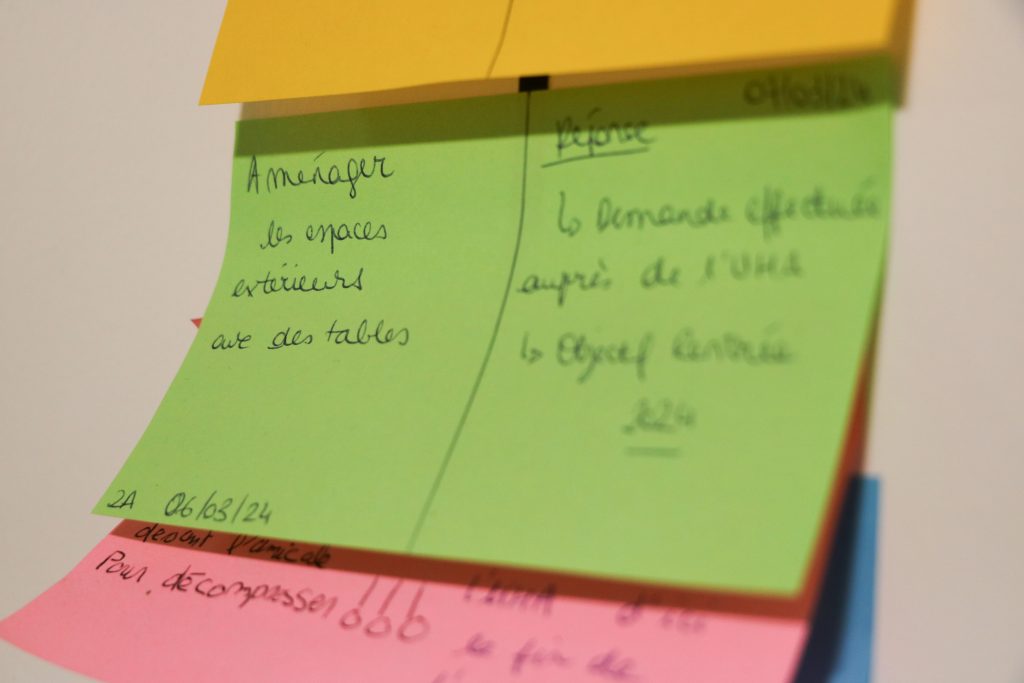 Aménager
les espaces
extérieurs
ave des tables
2A 06/03/24
07/03/24
Réponse
↳ Demande effectuée
auprès de l'UHA
↳ Objectif Rentrée
devant l'amicale
Pour décompresser !!!
l'UHA d'ici
la fin de